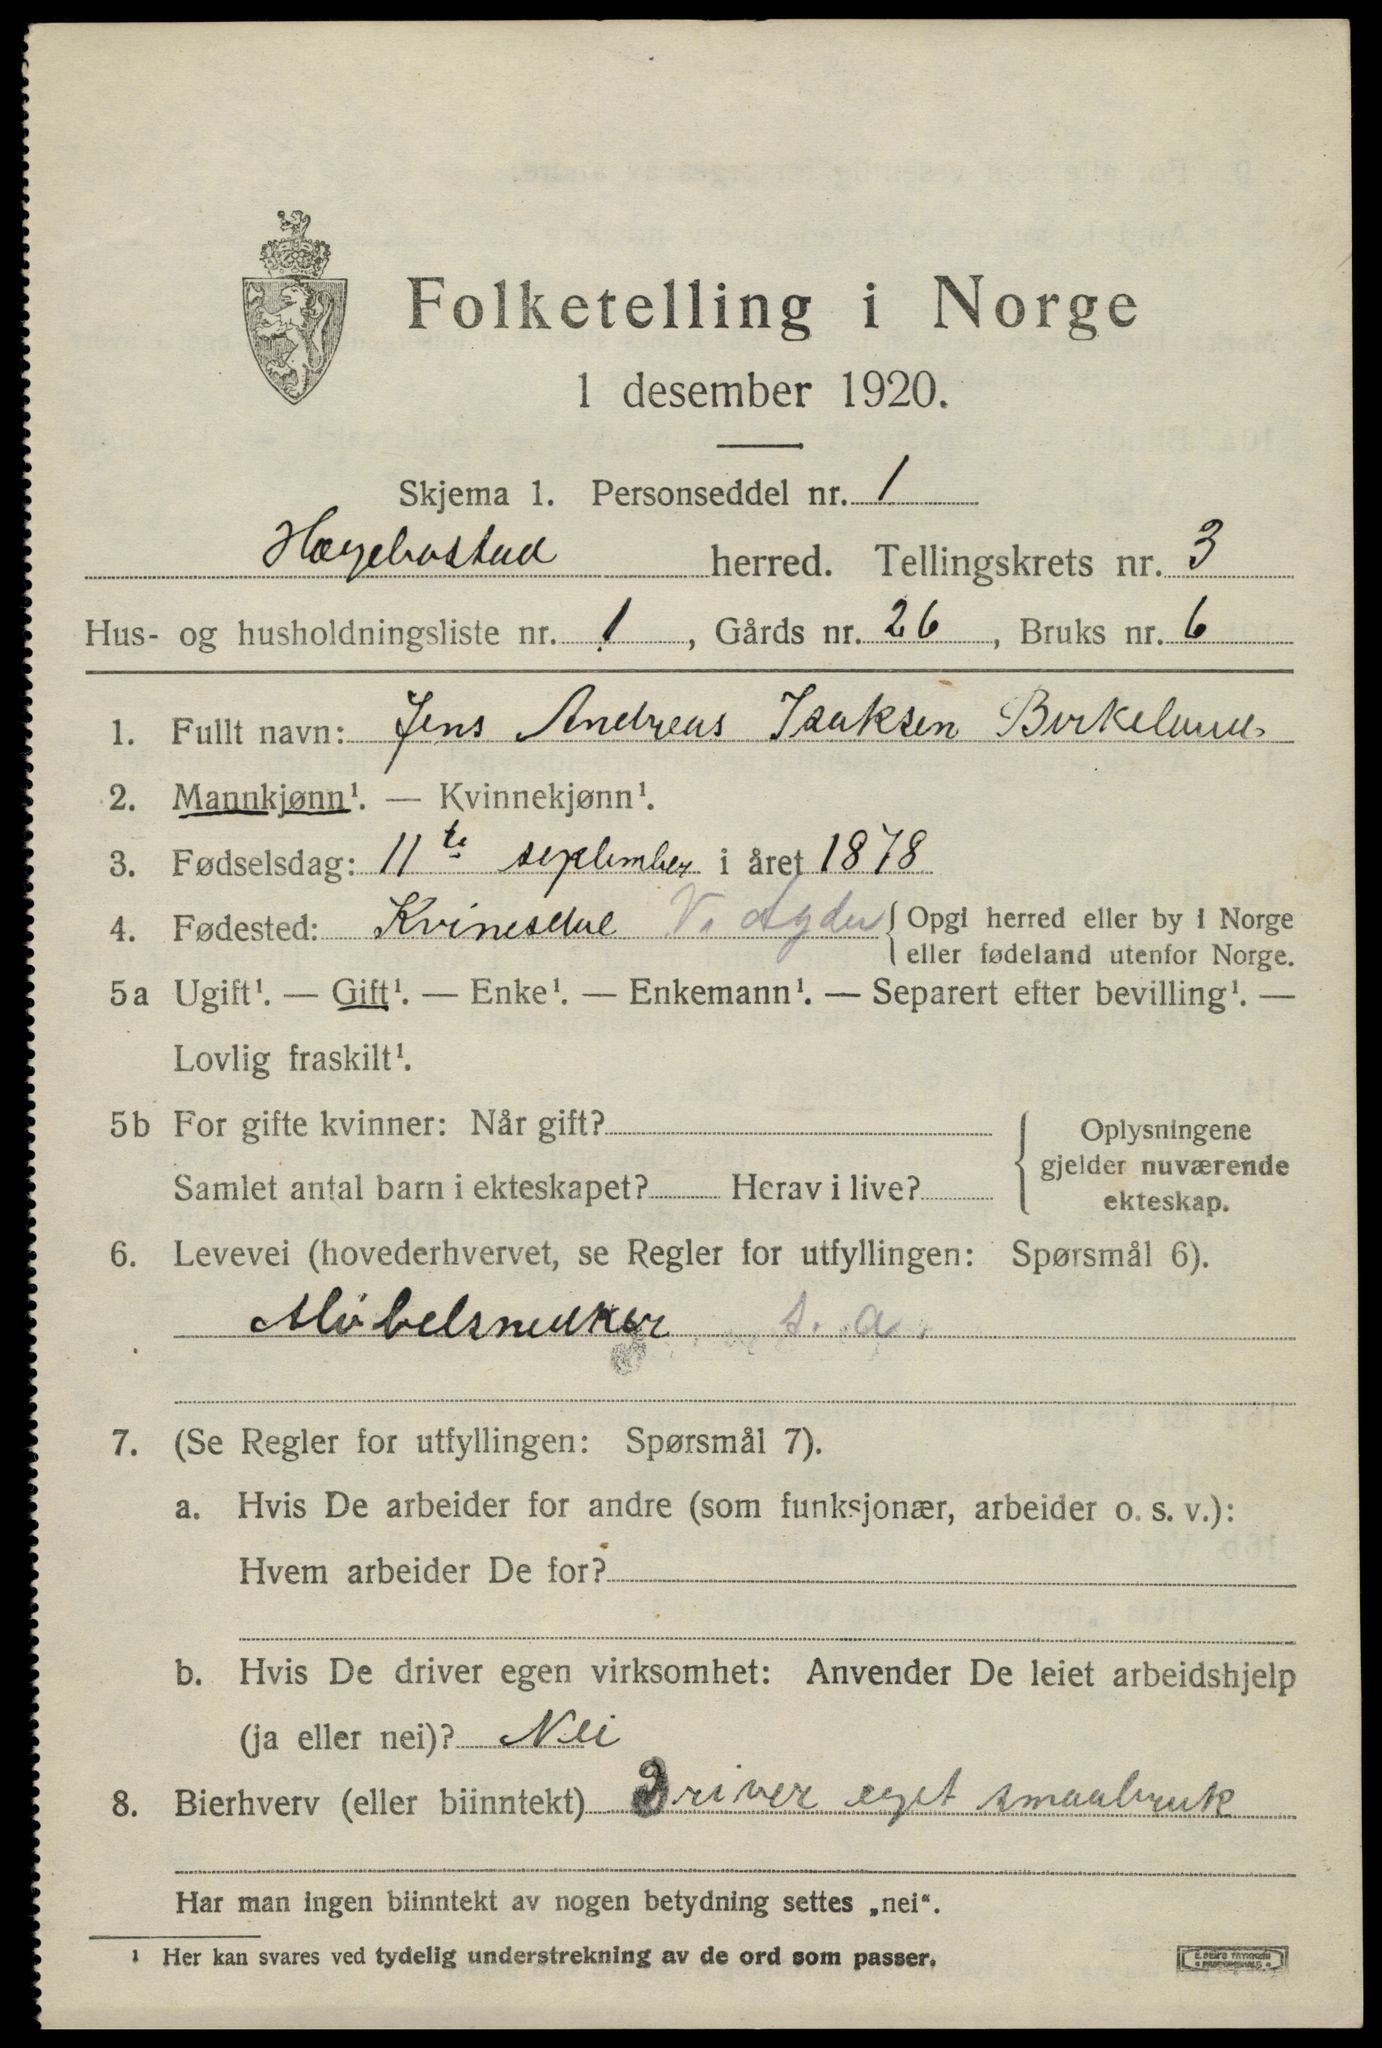 Folketelling i Norge
1 desember 1920.
Skjema 1. Personseddel nr. 1
Hægebostad herred. Tellingskrets nr. 3
Hus- og husholdningsliste nr. 1, Gårds nr. 26, Bruks nr. 6
1. Fullt navn: Jens Andreas Isaksen Birkeland
2. Mannkjønn¹. — Kvinnekjønn¹.
3. Fødselsdag: 11te september i året 1878
4. Fødested: Kvinesdal V. Agder { Opgi herred eller by i Norge
eller fødeland utenfor Norge.
5a Ugift¹. — Gift¹. — Enke¹. — Enkemann¹. — Separert efter bevilling¹. —
Lovlig fraskilt¹.
5b For gifte kvinner: Når gift? { Oplysningene
gjelder nuværende
Samlet antal barn i ekteskapet? Herav i live?
ekteskap.
6. Levevei (hovederhvervet, se Regler for utfyllingen: Spørsmål 6).
Møbelsnekker s. a.
7. (Se Regler for utfyllingen: Spørsmål 7).
a. Hvis De arbeider for andre (som funksjonær, arbeider o. s. v.):
Hvem arbeider De for?
b. Hvis De driver egen virksomhet: Anvender De leiet arbeidshjelp
(ja eller nei)? Nei
8. Bierhverv (eller biinntekt) Driver eget smaabruk
Har man ingen biinntekt av nogen betydning settes „nei“.
¹ Her kan svares ved tydelig understrekning av de ord som passer.